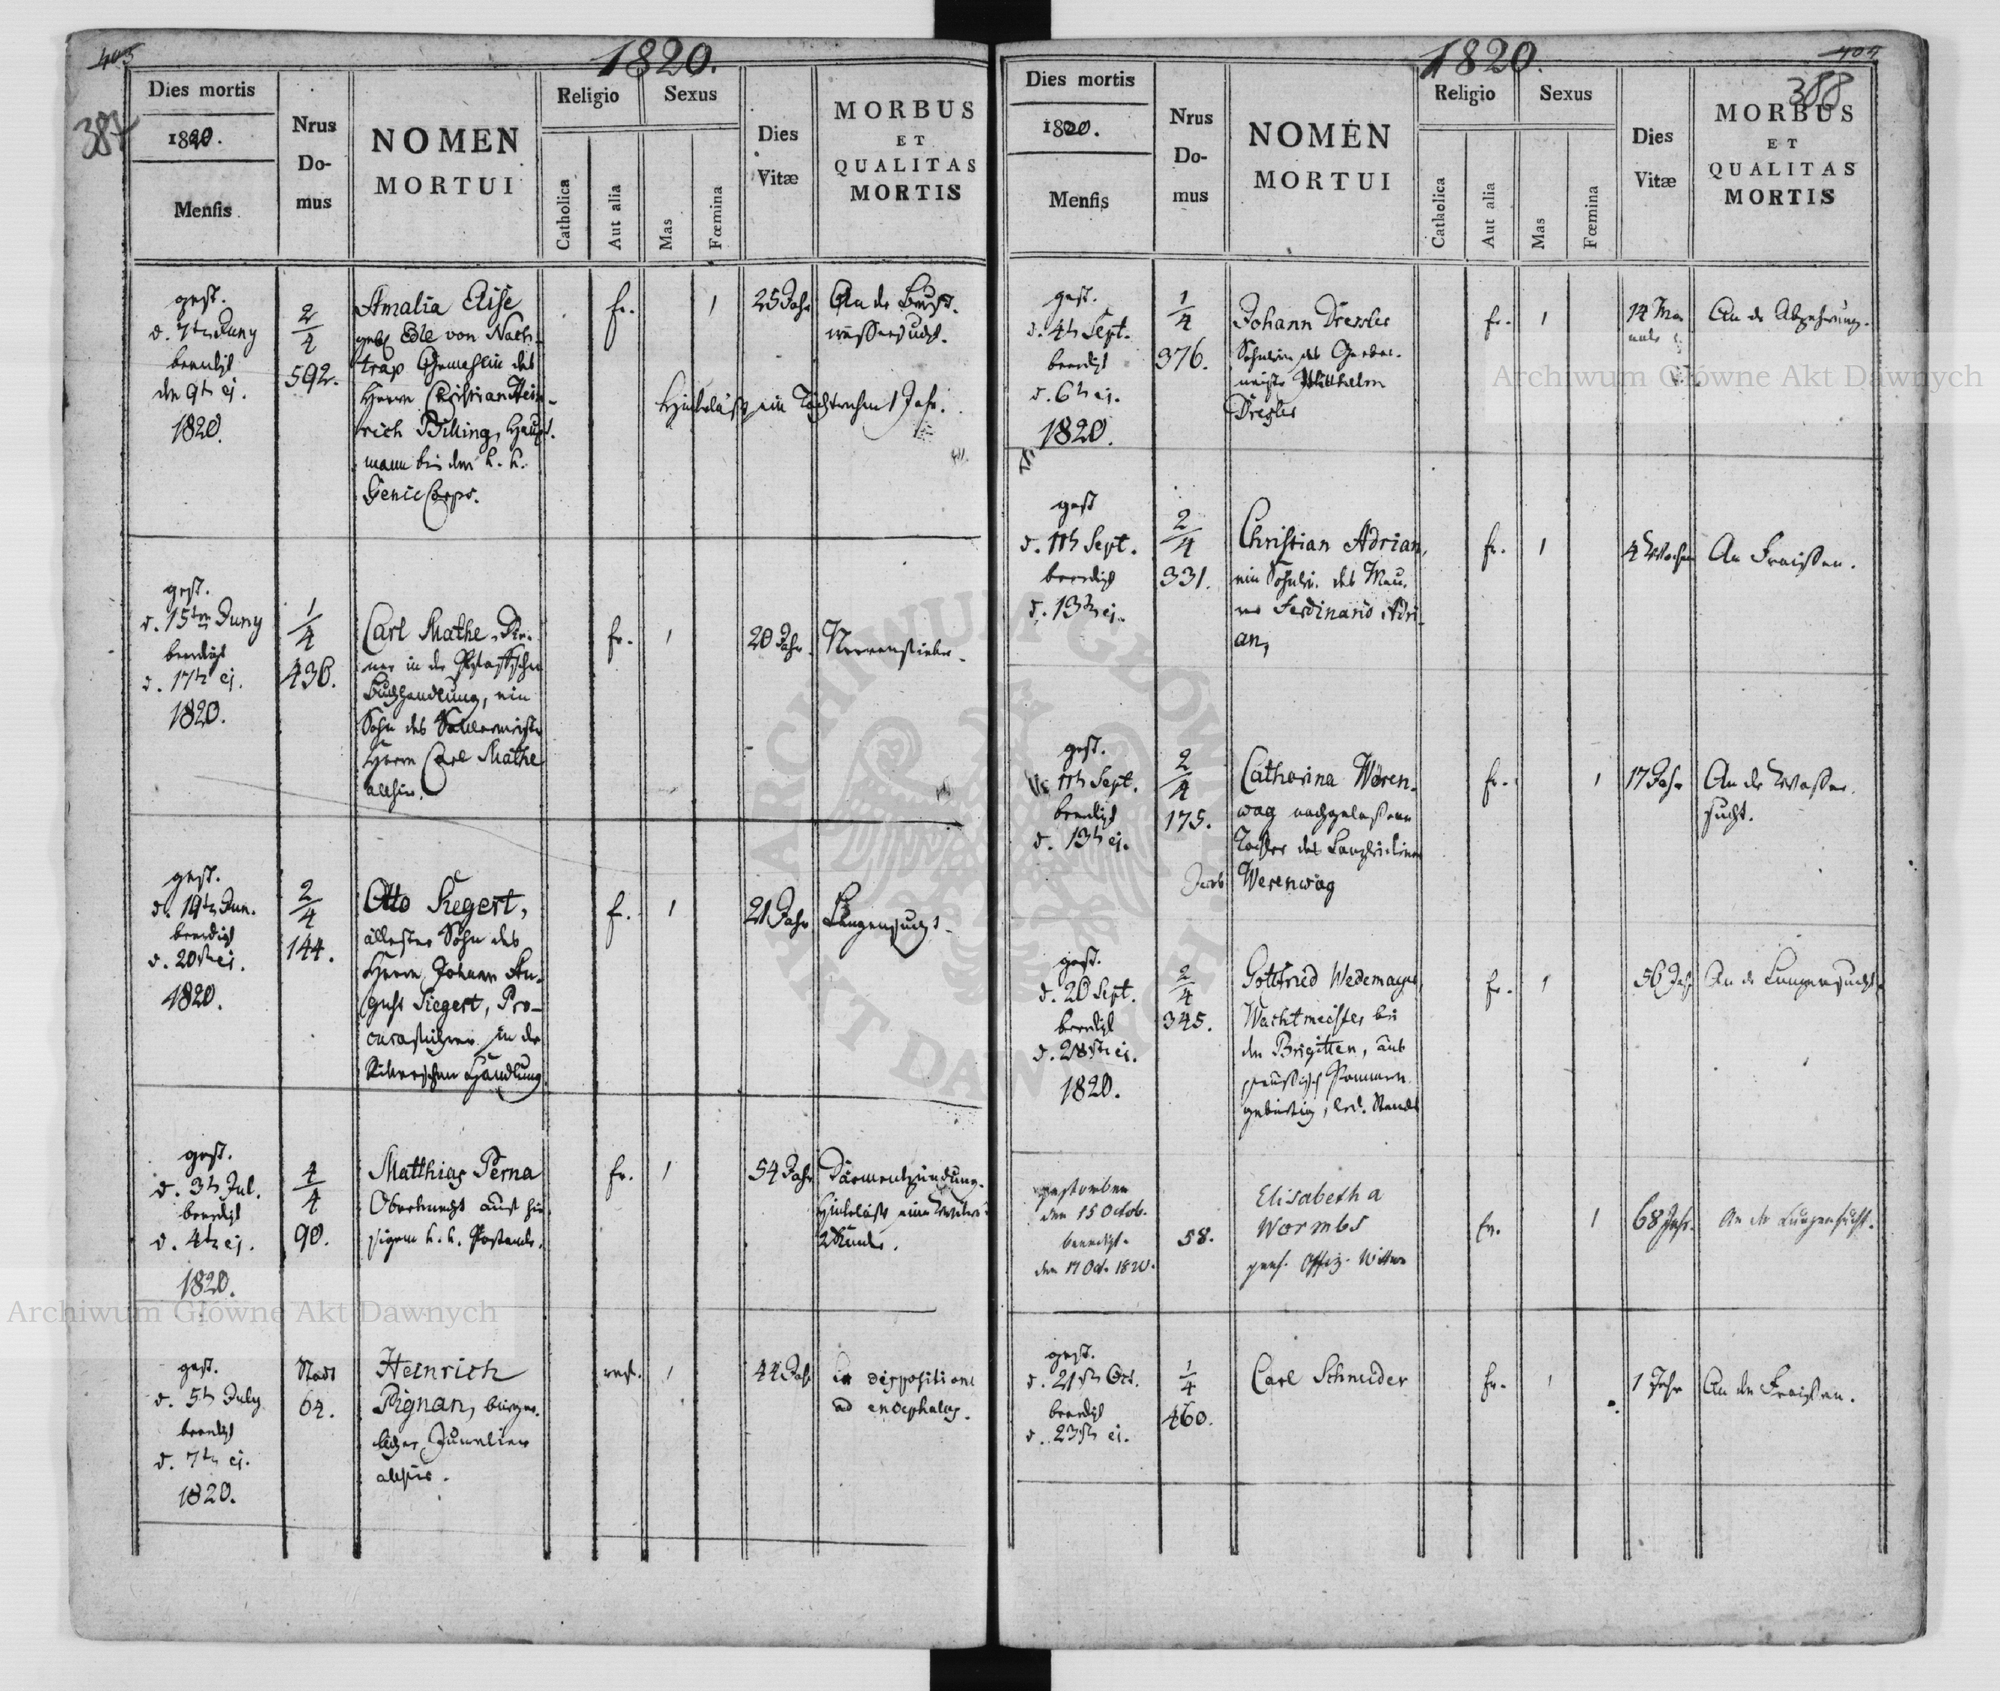 403
1820.
387
Dies mortis
1820.
Mensis
Nrus
Do-
mus
NOMEN
MORTUI
Religio
Catholica
Aut alia
Sexus
Mas
Fœmina
Dies
Vitæ
MORBUS
ET
QUALITAS
MORTIS
gest.
d. 7ten Juny
beerdigt
den 9ten ej.
1820.
2/4
592.
Amalia Elise
geb. Edle von Nach-
trap Gemahlin des
Herrn Christian Hein-
rich Billing, Haupt-
mann bei dem k. k.
Genie Corps.
fr.
1
25 Jahr
An der Brust-
wassersucht.
Hinterläßt ein Töchterchen 1 Jahr.
gest.
d. 15ten Juny
beerdigt
d. 17ten ej.
1820.
1/4
436.
Carl Mathe, Die-
ner in der Pfaffschen
Buchhandlung, ein
Sohn des
Herrn Carl Mathe
allhier.
fr.
1
20 Jahr
Nervenfieber
gest.
d. 19ten Jun.
beerdigt
d. 20sten ej.
1820.
2/4
144.
Otto Siegert,
ältester Sohn des
Herrn Johann Au-
gust Siegert, Pro-
curaführer in der
Handlung
f.
1
21 Jahr
Lungensucht
gest.
d. 3ten Jul.
beerdigt
d. 4ten ej.
1820.
4/4
90.
Matthias Perna
Oberknecht aus hie-
sigem k. k. Postamte.
fr.
1
54 Jahr
Därmentzündung.
Hinterläßt eine Wittwe
2 Kinder.
gest.
d. 5ten July
beerdigt
d. 7ten ej.
1820.
Stadt
64.
Heinrich
Pignan, bürger-
licher Juwelier
allhier.
ref.
1
44 Jahr
Ex dispositione
ad encephalos.
1820.
388
Dies mortis
1820.
Mensis
Nrus
Do-
mus
NOMEN
MORTUI
Religio
Catholica
Aut alia
Sexus
Mas
Fœmina
Dies
Vitæ
MORBUS
ET
QUALITAS
MORTIS
gest.
d. 4ten Sept.
beerdigt
d. 6ten ej.
1820.
1/4
376.
Johann Dressler
Söhnlein des
Wilhelm
Dressler
fr.
1
14 Mo-
nate
An der Abzehrung.
gest
d. 11ten Sept.
beerdigt
d. 13ten ej.
2/4
331.
Christian Adrian,
ein Söhnl. des Mau-
rers Ferdinand Adri-
an,
fr.
1
4 Wochen
An Fraißen.
gest.
d. 11ten Sept.
beerdigt
d. 13ten ej.
2/4
175.
Catharina Wören-
wag nachgelaßene
Tochter des
Jacob Werenwag
fr.
1
17 Jahr
An der Waßer-
sucht.
gest.
d. 20 Sept.
beerdigt
d. 28sten ej.
1820.
2/4
345.
Gottfried Wedemayer,
Wachtmeister bei
den Brigitten, aus
preußisch Pommern
gebürtig, led. Standes
fr.
1
56 Jahr
An der Lungensucht.
gestorben
den 15 Octob.
beerdigt
den 17 Oct. 1820.
58.
Elisabetha
Wormbs
pens. Offiz. Wittwe
fr.
1
68 Jahr.
An der Lungensucht.
gest.
d. 21sten Oct.
beerdigt
d. 23sten ej.
1/4
460.
Carl Schneider
fr.
1
1 Jahr
An den Fraißen.
Archiwum Główne Akt Dawnych
Archiwum Główne Akt Dawnych
ARCHIWUM GŁÓWNE AKT DAWNYCH